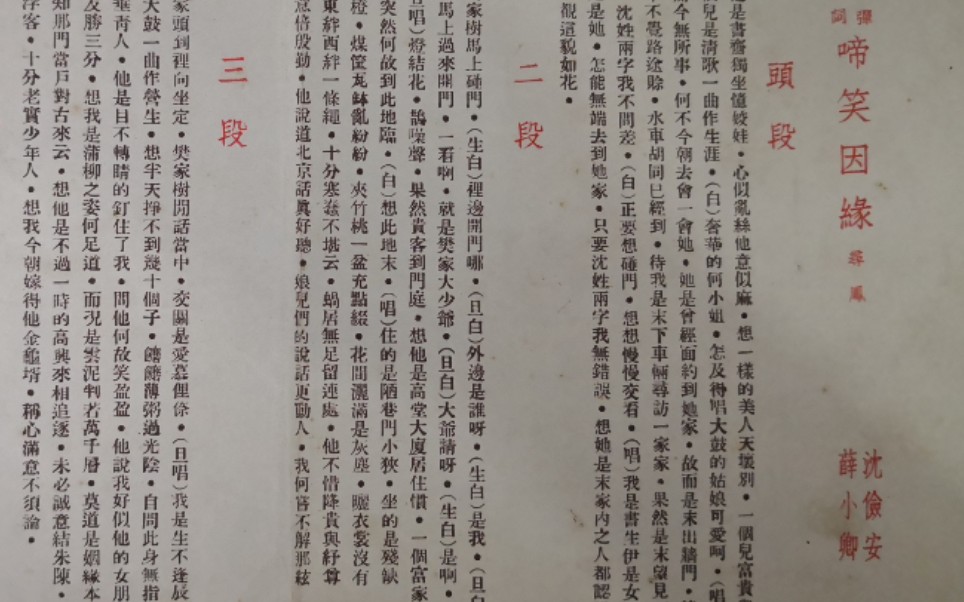 彈詞
啼笑因緣
尋鳳
沈儉安
薛小卿
頭段
是書齋獨坐憶姣娃・心似亂絲他意似麻・想一樣的美人天壤別・一個兒富貴
兒是清歌一曲作生涯・（白）奢華的何小姐・怎及得唱大鼓的姑娘可愛呵・（唱
今無所事・何不今朝去會一會她・她是曾經面約到她家・故而是末出牆門・
不覺路途賒・水車胡同已經到・待我是末下車輛尋訪一家家・果然是末望見
沈姓兩字我不問差・（白）正要想碰門・想想慢慢交看・（唱）我是書生伊是女
是她・怎能無端去到她家・只要沈姓兩字我無錯誤・想她是末家內之人都認
覩這貌如花・
二段
家樹馬上碰門・（生白）裡邊開門哪・（旦白）外邊是誰呀・（生白）是我・（旦白
馬上過來開門・一看啊・就是樊家大少爺・（旦白）大爺請呀・（生白）是啊・
唱）燈結花・鵲噪聲・果然貴客到門庭・想他是高堂大厦居住慣・一個富家
突然何故到此地臨・（白）想此地末・（唱）住的是陋巷門小狹・坐的是殘缺
橙・煤筐瓦缽亂紛紛・夾竹桃一盆充點綴・花間灑滿是灰塵・曬衣裳沒有
東絆西絆一條繩・十分寒蠢不堪云・蝸居無足留連處・他不惜降貴與紆尊
意倍殷勤・他說道北京話眞好聽・娘兒們的說話更動人・我何嘗不解那絃
三段
家頭到裡向坐定・樊家樹閒話當中・交關是愛慕俚僋・（旦唱）我是生不逢辰
大鼓一曲作營生・想半天掙不到幾十個子・饝饝薄粥過光陰・自問此身無指
垂靑人・他是目不轉睛的釘住了我・問他何故笑盈盈・他說我好似他的女朋
及勝三分・想我是蒲柳之姿何足道・而況是雲泥判若萬千層・莫道是姻緣本
知那門當戶對古來云・想他是不過一時的高興來相追逐・未必誠意結朱陳・
浮客・十分老實少年人・想我今朝嫁得他金龜壻・稱心滿意不須論・